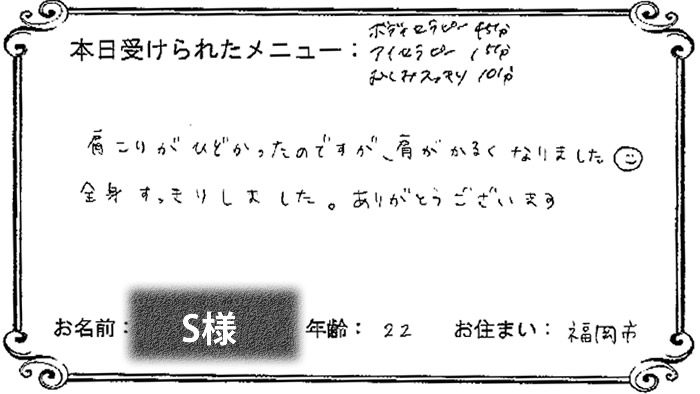 本日受けられたメニュー：
ボディセラピー 45分
アイセラピー 15分
むくみスッキリ 10分
肩こりがひどかったのですが、肩がかるくなりました☺
全身すっきりしました。ありがとうございます
お名前： S様 年齢： 22 お住まい： 福岡市